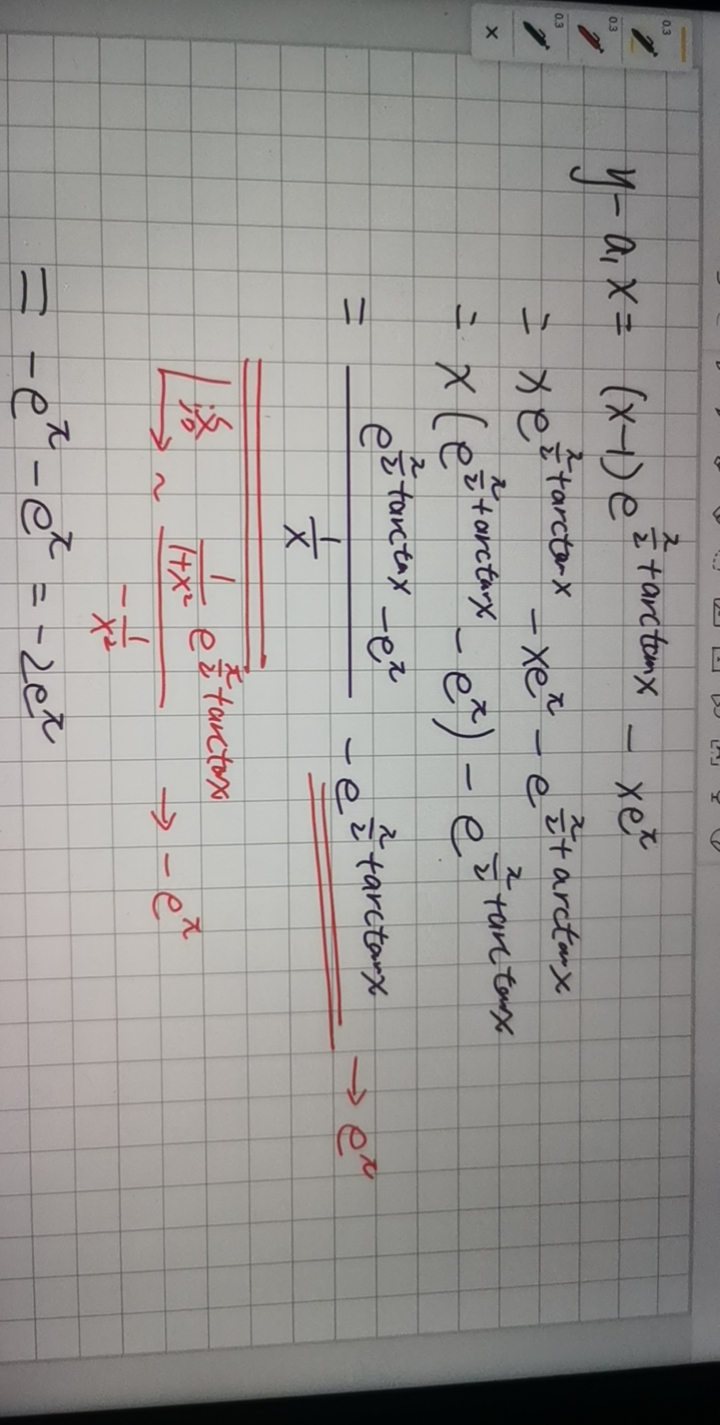 0.3 0.3 0.3 ×
y - a₁x = (x-1)e^{π/2 + arctanx} - xe^π
= xe^{π/2 + arctanx} - xe^π - e^{π/2 + arctanx}
= x(e^{π/2 + arctanx} - e^π) - e^{π/2 + arctanx}
= \frac{e^{π/2 + arctanx} - e^π}{\frac{1}{x}} - e^{π/2 + arctanx} → e^π
洛 ~ \frac{\frac{1}{1+x²} e^{π/2 + arctanx}}{-\frac{1}{x²}} → -e^π
= -e^π - e^π = -2e^π